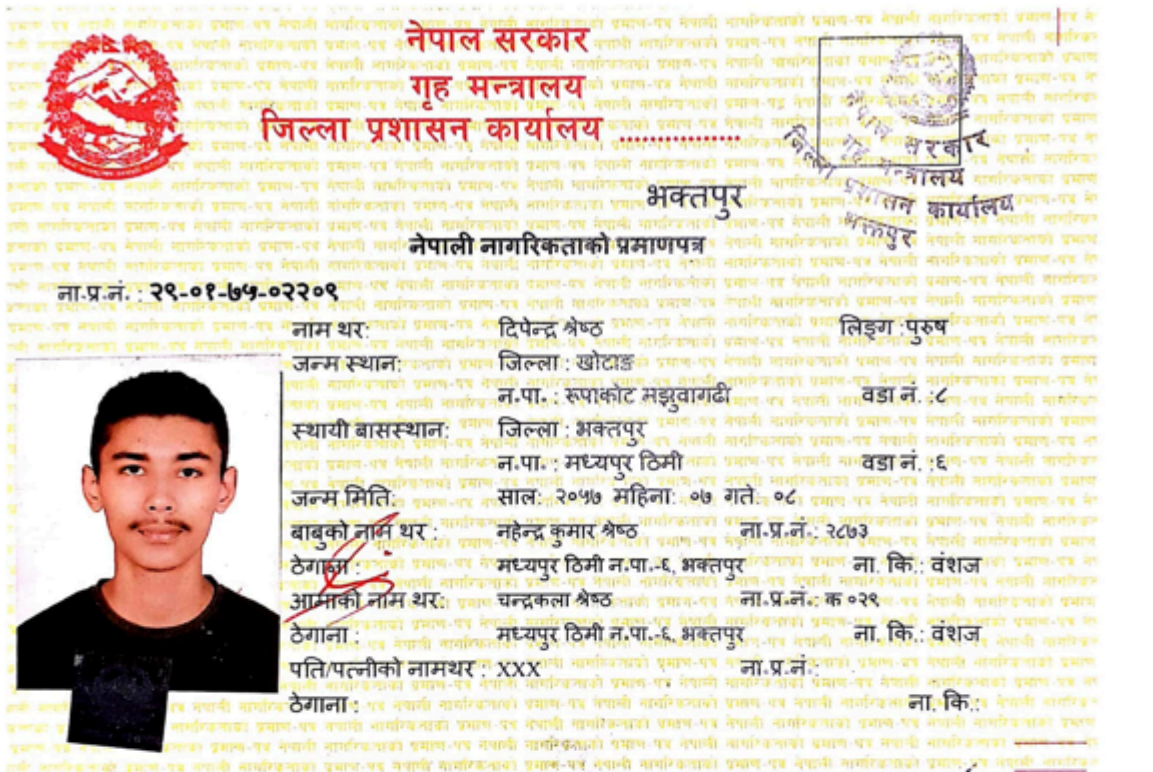 नेपाल सरकार
गृह मन्त्रालय
जिल्ला प्रशासन कार्यालय ................
भक्तपुर
नेपाल सरकार
गृह मन्त्रालय
जिल्ला प्रशासन कार्यालय
भक्तपुर
नेपाली नागरिकताको प्रमाणपत्र
ना.प्र.नं. : २९-०१-७५-०२२०९
नाम थर: दिपेन्द्र श्रेष्ठ लिङ्ग :पुरुष
जन्म स्थान: जिल्ला : खोटाङ
न.पा. : रूपाकोट मझुवागढी वडा नं. :८
स्थायी बासस्थान: जिल्ला : भक्तपुर
न.पा. : मध्यपुर ठिमी वडा नं. :६
जन्म मिति: साल: २०५७ महिना: ०७ गते: ०८
बाबुको नाम थर : नहेन्द्र कुमार श्रेष्ठ ना.प्र.नं.: २८७३
ठेगाना : मध्यपुर ठिमी न.पा.-६, भक्तपुर ना. कि.: वंशज
आमाको नाम थर: चन्द्रकला श्रेष्ठ ना.प्र.नं.: क ०२९
ठेगाना : मध्यपुर ठिमी न.पा.-६, भक्तपुर ना. कि.: वंशज
पति/पत्नीको नामथर : XXX ना.प्र.नं.:
ठेगाना : ना. कि.: